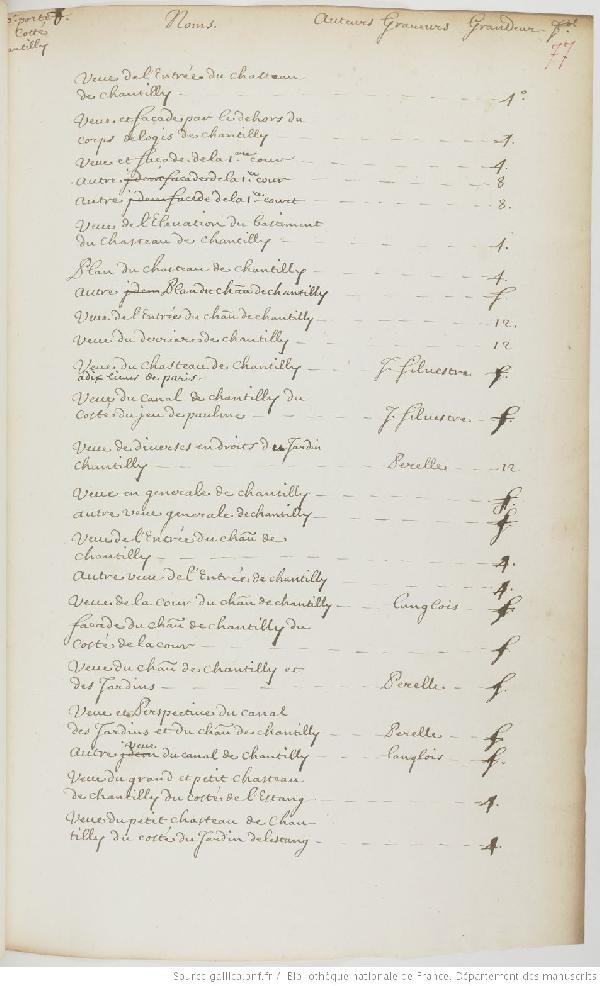 Noms. Auteurs Graveurs Grandeur
Costé
77
Veue de l'Entrée du chasteau
de chantilly 4°
Veue et façade par le dehors du
corps de logis de chantilly 4.
Veue et façade de la 1.ere cour 4.
autre jdem façade de la 1.ere cour 8
autre jdem facede de la 1.ere court 8.
Veue de l'Elevation du bastiment
du chasteau de chantilly 4.
Plan du chasteau de chantilly 4.
autre jdem Plan du chau de chantilly f
Veue de l'Entrée du chau de chantilly 12.
Veue du derriere de chantilly 12
Veue du chasteau de chantilly J. Silvestre f.
a dix lieues de paris.
Veue du canal de chantilly du
costé du jeu de paulme J. Silvestre f.
Veue de diverses endroits du Jardin
chantilly Perelle 12
Veue en generale de chantilly f.
autre veue generale de chantilly f
Veue de l'Entrée du chau de
chantilly 4.
Autre veue de l'Entrée de chantilly 4.
Veue de la cour du chau de chantilly Langlois f
façade du chau de chantilly du
costé de la cour f
Veue du chau de chantilly et
des Jardins Perelle f.
Veue et Perspective du canal
des Jardins et du chau de chantilly Perelle f
veue
Autre jdem du canal de chantilly Langlois f.
Veue du grand et petit chasteau
de chantilly du costé de l'Estang 4.
Veue du petit chasteau de Chan
tilly du costé du Jardin de lestang 4.
Source gallica.bnf.fr / Bibliothèque nationale de France. Département des manuscrits